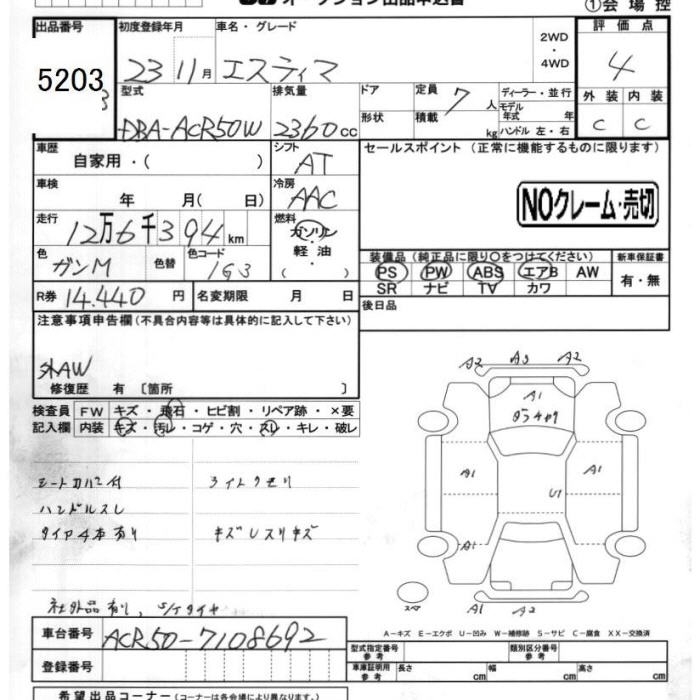 オークション出品申込書 ①会場控
出品番号 初度登録年月 車名・グレード 評価点
5203 23 11月 エスティマ 2WD・4WD 4
型式 排気量 ドア 定員 7人 ディーラー・並行 外装 内装
DBA-ACR50W 2360cc 形状 積載 kg モデル年式 年 ハンドル 左・右 C C
車歴 自家用・( ) シフト AT セールスポイント (正常に機能するものに限ります)
車検 年 月(日) 冷房 AAC NOクレーム・売切
走行 12万6千394km 燃料 ガソリン・軽油・( )
色 ガンM 色替 色コード 1G3 装備品 (純正品に限り○をつけてください) 新車保証書
PS PW ABS エアB AW 有・無
SR ナビ TV カワ
R券 14.440円 名変期限 月 日 後日品
注意事項申告欄 (不具合内容等は具体的に記入して下さい)
外AW
修復歴 有 〔箇所 〕
検査員 FW キズ・飛石・ヒビ割・リペア跡・×要
記入欄 内装 キズ・汚レ・コゲ・穴・スレ・キレ・破レ
シートカバー付 ライトクモリ
ハンドルスレ
タイヤ4本有り キズレスリキズ
社外品有り、S/Tタイヤ
A2 A3 A2
A1
A1 A1
U1
A1 A1
スペア
A-キズ E-エクボ U-凹み W-補修跡 S-サビ C-腐食 XX-交換済
車台番号 ACR50-7108692
型式指定番号 参考 類別区分番号 参考
登録番号 車庫証明用 参考 長さ cm 幅 cm 高さ cm
希望出品コーナー (コーナーは各会場により異なります。)